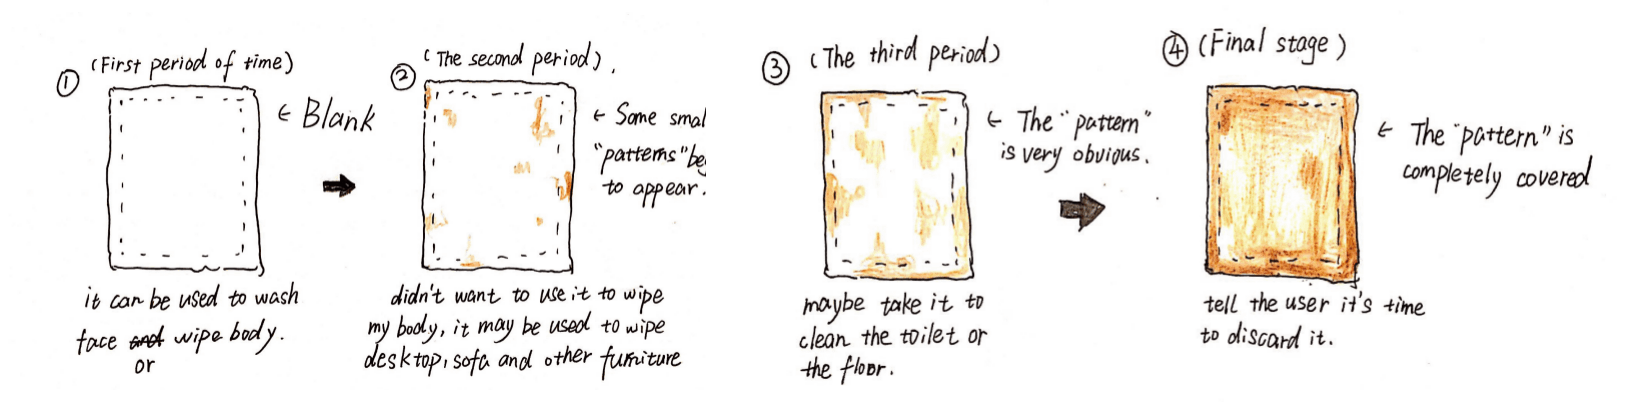 ①
(First period of time)
← Blank
it can be used to wash
face and wipe body.
or
②
(The second period).
← Some smal
"patterns" be
to appear.
didn't want to use it to wipe
my body, it may be used to wipe
desktop, sofa and other furniture
③
(The third period)
← The "pattern"
is very obvious.
maybe take it to
clean the toilet or
the floor.
④ (Final stage)
← The "pattern" is
completely covered
tell the user it's time
to discard it.